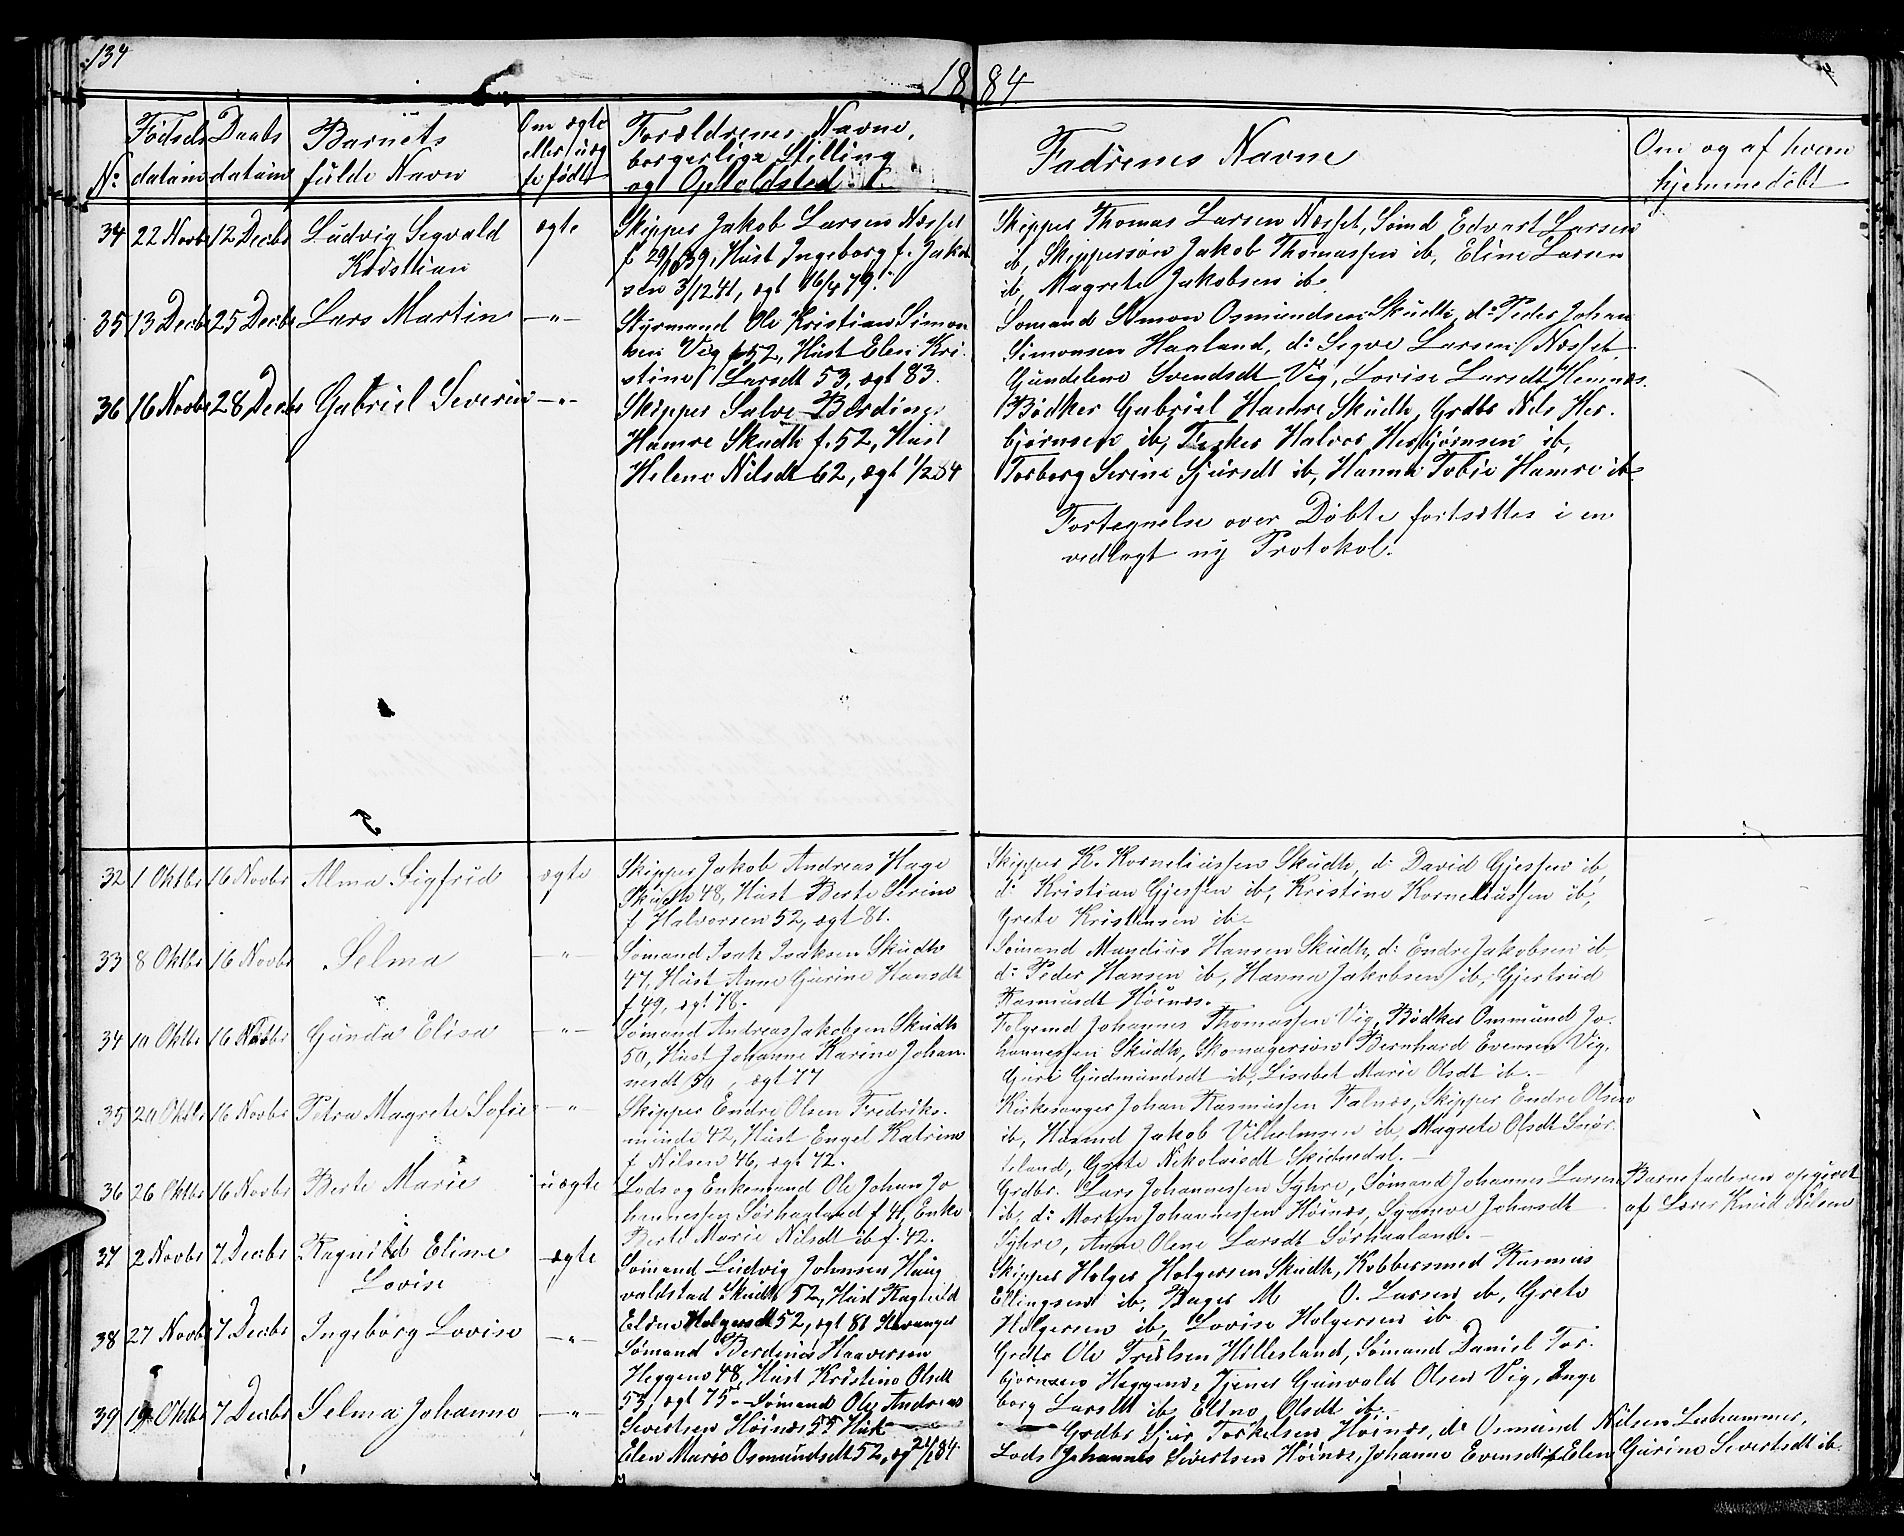 134
1884
No
Fødsels datum
Daabs datum
Barnets fulde Navn
Om ægte eller uæg te født
Forældrenes Navne, borgerlige Stilling og Opholdsted
Fadrenes Navne
Om og af hvem hjemmedøbt
34 22 Novbr 12 Decbr Ludvig Segvald Kristian ægte
Skipper Jakob Larsen Næsset
f 29/ 39, Hust Ingeborg f. Jakob
sen 3/12 41, ægt 16/4 79.
Skipper Thomas Larsen Næsset, Sømd Edvart Larsen
ib, Skippersøn Jakob Thomassen ib, Eline Larsen
ib, Magrete Jakobsen ib.
35 13 Decbr 25 Decbr Lars Martin -"-
Styrmand Ole Kristian Simon
sen Vig f 52, Hust Elen Kri
stine Larsdt 53, ægt 83.
Sømand Simon Osmundsen Skudh, do Peder Johan
Simonsen Haaland, do Segve Larsen Næsset
Gundelene Svendsdt Vig, Lovise Larsdt Hemnæs.
36 16 Novbr 28 Decbr Gabriel Severin -"-
Skipper Salve Berdines
Hamre Skudh f. 52, Hust
Helene Nilsdt 62, ægt 1/2 84
Bødker Gabriel Hamre Skudh, Grdbr Nels Her
bjørnsen ib, Fisker Halvor Herbjørnsen ib,
Torborg Serine Sjursdt ib, Hanna Tobie Hamre ib
Fortegnelse over Døbte fortsættes i en
vedlagt ny Protokol.
32 1 Oktbr 16 Novbr Alma Sigfrid ægte
Skipper Jakob Andreas Hage
Skudh 48, Hust Berte Serine
f Halvorsen 52, ægt 81.
Skipper K. Korneliussen Skudh, do David Gjessen ib,
do Kristian Gjessen ib, Kristine Korneliussen ib,
Grete Kristensen ib
33 8 Oktbr 16 Novbr Selma -"-
Sømand Isak Isaksen Skudh
47, Hust Anne Gurine Hansdt
f 49, ægt 78.
Sømand Mandius Hansen Skudh, do Endre Jakobsen ib
do Peder Hansen ib, Hanna Jakobsen ib, Gjertrud
Rasmusdt Høinæs.
34 10 Oktbr 16 Novbr Gunda Elisa -"-
Sømand Andreas Jakobsen Skudh
50, Hust Johanne Karine Johan
nesdt 50, ægt 77
Folgemd Johannes Thomassen Vig, Bødker Ommund Jo.
hannessen Skudh, Skomagersøn Bernhard Evensen Vig,
Guri Gudmundsdt ib, Lisabet Marie Olsdt ib.
35 20 Oktbr 16 Novbr Petra Magrete Sofie -"-
Skipper Endre Olsen Fredriks.
minde 42, Hust Engel Katrine
f Nilsen 46, ægt 72.
Kirkesanger Johan Rasmussen Falnæs, Skipper Endre Olsen
ib, Husmd Jakob Vilhelmsen ib, Magrete Olsdt Snør
teland, Grete Nikolaisdt Skidnedal.
36 26 Oktbr 16 Novbr Berte Marie uægte
Lods og Enkemand Ole Johan Jo
hannessen Sørhaaland f 41, Enke
Berte Marie Nilsdt ib f. 42.
Grdbr. Lars Johannessen Syhre, Sømand Johannes Larsen
ib, do Morten Johannessen Høinæs, Synnove Johnsdt
Syhre, Anne Olene Larsdt Sørhaaland.
Barnefaderen opgivet
af Lærer Knud Nilsen
37 2 Novbr 7 Decbr Ragnild Eline Lovise ægte
Sømand Ludvig Johnsen Haug
valdstad Skudh 52, Hust Ragnild
Eline Holgersdt 52, ægt 81 Stavanger
Skipper Holger Holgersen Skudh, Kobbersmed Rasmus
Ellingsen ib, Bager M O. Larsen ib, Grete
Holgersen ib, Lovise Holgersen ib
38 27 Novbr 7 Decbr Ingeborg Lovise -"-
Sømand Berdines Haaversen
Heggem 48, Hust Kristine Olsdt
53, ægt 75
Grdbr Ole Trulsen Hillesland, Sømand Daniel Tor.
bjørnsen Heggem, Tjener Gunvald Olsen Vig, Inge
borg Larsdt ib, Eline Olsdt ib.
39 19 Oktbr 7 Decbr Selma Johanne -"-
Sømand Ole Andreas
Severtsen Høinæs 55 Hust
Elen Marie Osmundsdt 52, æg 21/1 84
Grdbr Sjur Torkelsen Høinæs, do Osmund Nilsen Liehammer,
Lods Johannes Sivertsen Høinæs, Johanne Evensdt Elen Gurine Severtsdt ib.